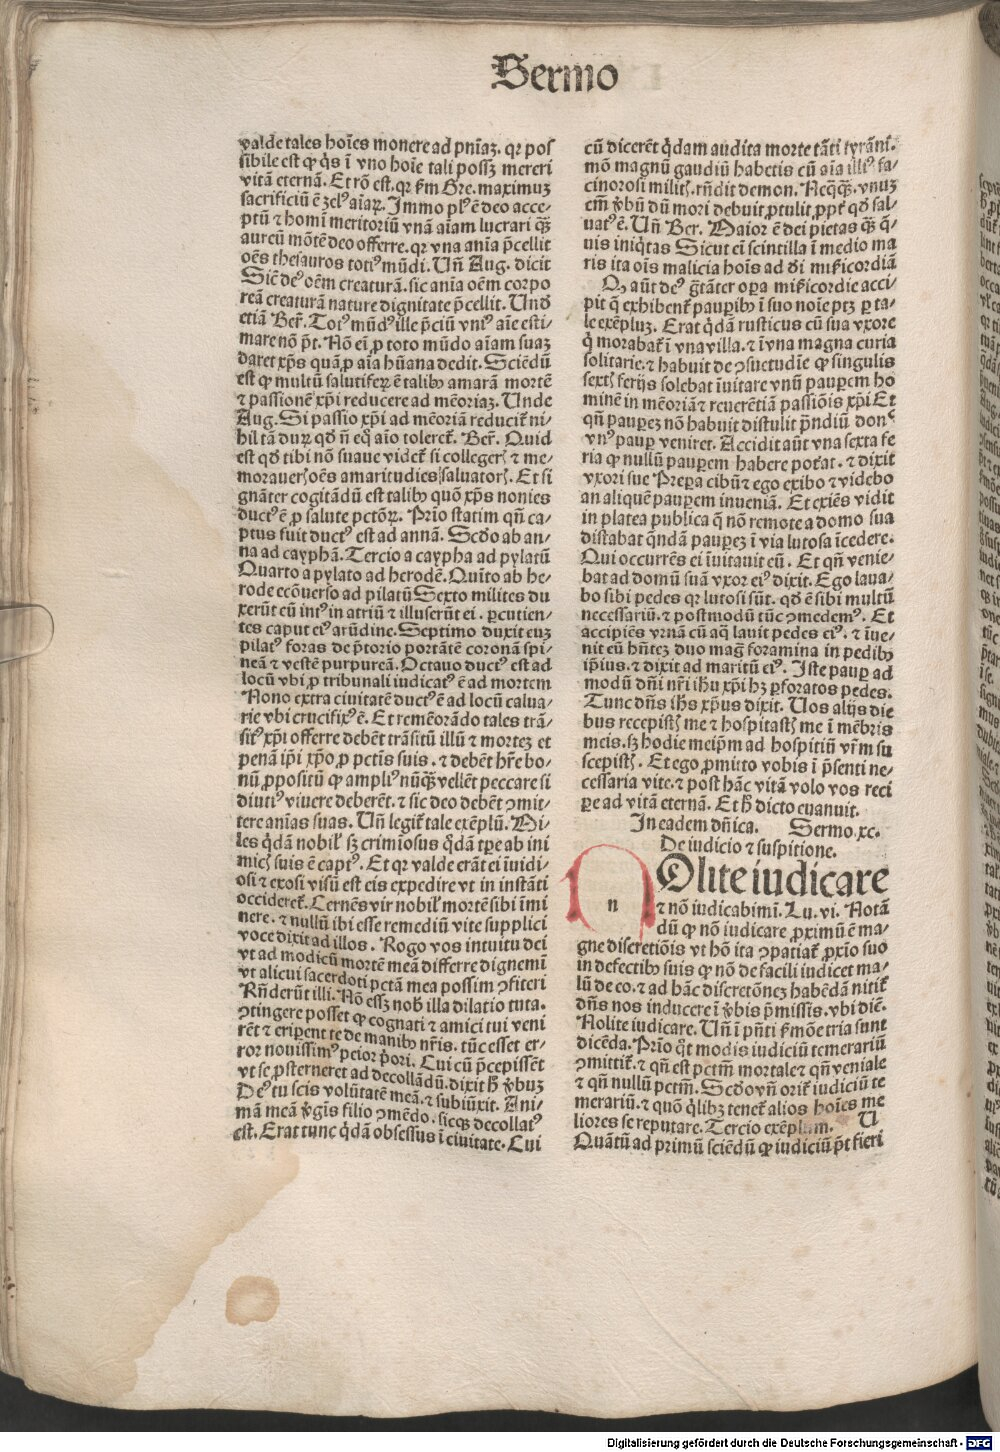 Sermo
valde tales hoīes monere ad pn̄iaꝫ. qꝛ pos
sibile est ꝙ q̇s ī vno hoīe tali possꝫ mereri
vitā eternā. Et rō est. qꝛ ẜm Gre. maximuꝫ
sacrificiū ē zelꝰ aīaꝝ. Immo plꝰ ē deo acce-
ptū ⁊ homī meritoriū vnā aīam lucrari qꝫ̄
aureū mōtē deo offerre. qꝛ vna anīa p̄cellit
oēs thesauros totiꝰ mūdi. Un̄ Aug. dicit
Sic̄ deꝰ oēm creaturā. sic anīa oēm corpo
reā creaturā nature dignitate p̄cellit. Un̄
etiā Ber̄. Totꝰ mūdꝰ ille p̄ciū vniꝰ aīe esti-
mare nō p̄t. Nō ei̅ ꝓ toto mūdo aīam suaꝫ
daret xp̄s quā ꝓ aīa hūana dedit. Sciēdū
est ꝙ multū salutiferꝫ ē talibꝰ amarā mortē
⁊ passionē xp̄i reducere ad mēoriaꝫ. Unde
Aug. Si passio xp̄i ad mēoriā reducit̄ ni-
hil tā duꝝ qd̄ n̄ eq̇ aīo tolleret̄. Ber̄. Quid
est qd̄ tibi nō suaue videt̄ si collegerꝭ ⁊ me-
morauerꝭ oēs amaritudīes saluatorꝭ. Et si
gnāter cogitādū est talibꝰ quō xp̄s nonies
ductꝰ ē ꝓ salute pctōꝝ. Prīo statim qn̄ ca-
ptus fuit ductꝰ est ad annā. Scd̄o ab an-
na ad cayphā. Tercio a caypha ad pylatū
Quarto a pylato ad herodē. Quīto ab he-
rode ecōuerso ad pilatū Sexto milites du
xerūt eū intꝰ in atriū ⁊ illuserūt ei. ꝑcutien-
tes caput eiꝰ arūdine. Septimo duxit euꝫ
pilatꝰ foras de p̄torio portātē coronā spi-
neā ⁊ vestē purpureā. Octauo ductꝰ est ad
locū vbi ꝓ tribunali iudicatꝰ ē ad mortem
Nono extra ciuitatē ductꝰ ē ad locū calua-
rie vbi crucifixꝰ ē. Et remēorādo tales trā-
sitꝰ xp̄i offerre debēt trāsitū illū ⁊ morteꝫ et
penā ip̄i xp̄o ꝓ pctis suis. ⁊ debēt hr̄e bo-
nū ꝓpositū ꝙ ampliꝰ nūqꝫ̄ vellēt peccare si
diutiꝰ viuere deberēt. ⁊ sic deo debēt ꝯmit-
tere anīas suas. Un̄ legit̄ tale exēplū. Mi-
les q̇dā nobilꝭ sꝫ crimīosus q̇dā tꝑe ab ini
micꝭ suis ē captꝰ. Et qꝛ valde erāt ei īuidi-
osi ⁊ exosi visū est eis expedire vt in instāti
occideret̄. Cernēs vir nobilꝭ mortē sibi īmi
nere. ⁊ nullū ibi esse remediū vite supplici
voce dixit ad illos. Rogo vos intuitu dei
vt ad modicū mortē meā differre dignemī
vt alicui sacerdoti pctā mea possim ꝯfiteri
Rn̄derūt illi. Nō essꝫ nob̄ illa dilatio tuta.
ꝯtingere posset ꝙ cognati ⁊ amici tui veni
rēt ⁊ eriꝑent te de manibꝰ nr̄is. tūc esset er-
ror nouissimꝰ peior p̄ori. Cui cū p̄cepissēt
vt se ꝓsterneret ad decollādū. dixit h̄ ꝟbuꝫ
Deꝰ tu scis volūtatē meā. ⁊ subiūxit. Ani-
mā meā ꝟgīs filio ꝯmēdo. sicqꝫ decollatꝰ
est. Erat tunc q̇dā obsessus ī ciuitate. Cui
cū dicerēt q̇dam audita morte tāti tyrānī.
mō magnū gaudiū habetis cū aīa illiꝰ fa-
cinorosi militꝭ. rn̄dit demon. Neqqꝫ̄. vnuꝫ
em̄ ꝟbū dū mori debuit ꝓtulit ꝓpt̄ qd̄ sal-
uatꝰ ē. Un̄ Ber. Maior ē dei pietas qꝫ̄ q̄-
uis iniq̇tas Sicut ei̅ scintilla ī medio ma
ris ita oīs malicia hoīs ad dī mīẜicordiā
Q̓ aūt deꝰ gr̄āter oꝑa mīẜicordie acci-
pit q̄ exhibent̄ pauꝑibꝰ ī suo noīe ptꝫ ꝑ ta-
le exēpluꝫ. Erat q̇dā rusticus cū sua vxore
q̇ morabat̄ ī vna villa. ⁊ ī vna magna curia
solitarie. ⁊ habuit de ꝯsuetudīe ꝙ singulis
sextꝭ ferijs solebat īuitare vnū pauꝑem ho
minē in mēoriā ⁊ reuerētiā passiōis xp̄i Et
qn̄ pauꝑeꝫ nō habuit distulit p̄ndiū donꝰ
vnꝰ pauꝑ veniret. Accidit aūt vna sexta fe
ria ꝙ nullū pauꝑem habere pot̄at. ⁊ dixit
vxori sue Preꝑa cibū ⁊ ego exibo ⁊ videbo
an aliquē pauꝑem inueniā. Et exiēs vidit
in platea publica q̄ nō remote a domo sua
distabat qn̄dā pauꝑeꝫ ī via lutosa īcedere.
Qui occurrēs ei īuitauit eū. Et qn̄ venie-
bat ad domū suā vxor eiꝰ dixit. Ego laua-
bo sibi pedes qꝛ lutosi sūt. qd̄ ē sibi multū
necessariū. ⁊ postmodū tūc ꝯmedemꝰ. Et
accipiēs vrnā cū aq̄ lauit pedes eiꝰ. ⁊ īue-
nit eū hn̄teꝫ duo maḡ foramina in pedibꝰ
ip̄ius. ⁊ dixit ad maritū eiꝰ. Iste pauꝑ ad
modū dn̄i nr̄i ihū xp̄i hꝫ ꝑforatos pedes.
Tunc dn̄s ihs̄ xp̄us dixit. Uos alijs die
bus recepistꝭ me ⁊ hospitastꝭ me ī mēbris
meis. sꝫ hodie meip̄m ad hospitiū vr̄m su
scepistꝭ. Et ego ꝓmitto vobis ī p̄senti ne-
cessaria vite. ⁊ post hāc vitā volo vos reci
ꝑe ad vitā eternā. Et h̄ dicto euanuit.
In eadem dn̄ica. Sermo .xc.
De iudicio ⁊ suspitione.
n
Olite iudicare
⁊ nō iudicabimī. Lu. vi. Notā
dū ꝙ nō iudicare ꝓximū ē ma-
gne discretiōis vt hō ita ꝯpatiat̄ ꝓxīo suo
in defectibꝰ suis ꝙ nō de facili iudicet ma-
lū de eo. ⁊ ad hāc discretōneꝫ habēdā nitit̄
dn̄s nos inducere ī ꝟbis p̄missis. vbi diē.
Nolite iudicare. Un̄ ī pn̄ti ẜmōe tria sunt
dicēda. Prīo q̊t modis iudiciū temerariū
ꝯmittit̄. ⁊ qn̄ est pctm̄ mortale ⁊ qn̄ veniale
⁊ qn̄ nullū pctm̄. Scd̄o vn̄ orit̄ iudiciū te
merariū. ⁊ quō q̇libꝫ tenet̄ alios hoīes me
liores se reputare. Tercio exēplum. U
Quātū ad primū sciēdū ꝙ iudiciū p̄t fieri
Digitalisierung gefördert durch die Deutsche Forschungsgemeinschaft - DFG